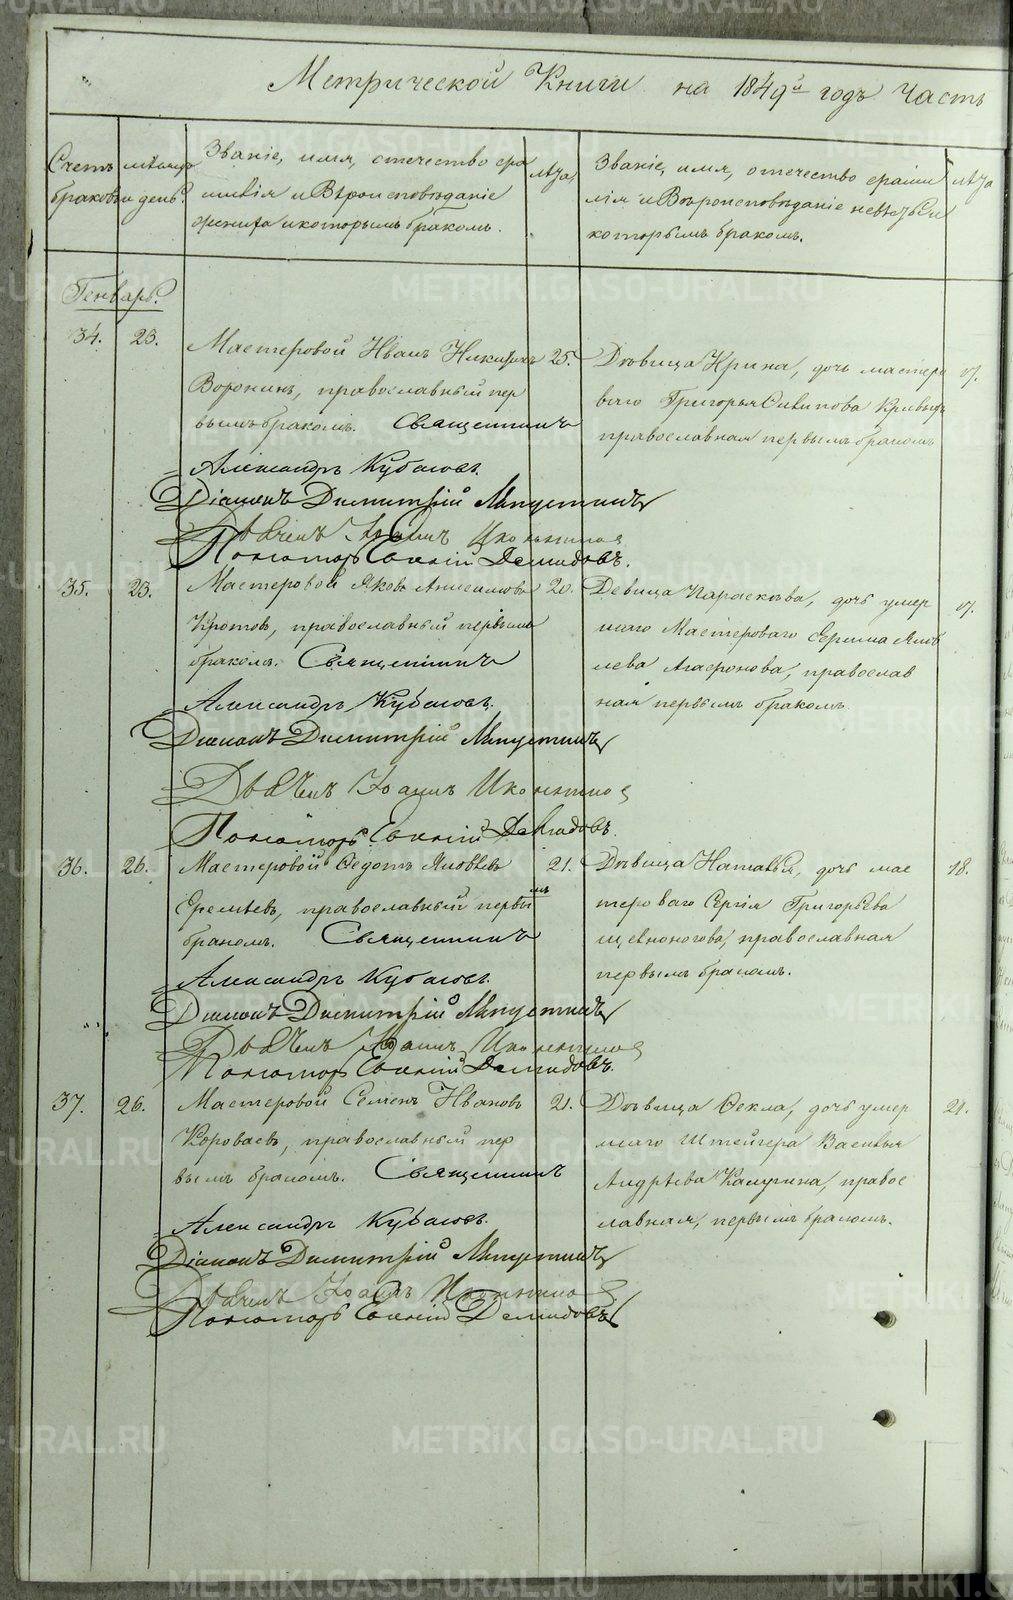 Метрической Книги на 1849й годъ Часть
Счетъ браковъ
мѣсяцъ и день.
Званіе, имя, отечество фа
милія и Вѣроисповѣданіе
жениха и которымъ бракомъ.
лѣта
Званіе, имя, отечество фами
лія и Вѣроисповѣданіе невѣсты и
которымъ бракомъ.
лѣта
Генварь.
34. 23.
Мастеровой Иванъ
Воронинъ, православный пер
вымъ бракомъ. Священникъ
Александръ Кубасовъ.
Діаконъ Димитрій
Дьячекъ Іоаннъ
Пономарь Евгеній Демидовъ.
25.
Дѣвица Ирина, дочь мастеро
ваго Григорья
православная первымъ бракомъ
17.
35. 23.
Мастеровой Яковъ Анисимовъ
Кротовъ, православный первымъ
бракомъ. Священникъ
Александръ Кубасовъ.
Діаконъ Димитрій
Дьячекъ Іоаннъ
Пономарь Евгеній Демидовъ.
20.
Девица Параскева, дочь умер
шаго Мастероваго Ефима Яков
лева Агафонова, православ
ная первымъ бракомъ.
17.
36. 26.
Мастеровой Федотъ Яковлевъ
Еремѣевъ, православный первы
мъ
бракомъ. Священникъ
Александръ Кубасовъ.
Діаконъ Димитрій
Дьячекъ Іоаннъ
Пономарь Евгеній Демидовъ.
21.
Дѣвица Наталья, дочь мас
тероваго Сергія Григорьева
Щевноногова, православная
первымъ бракомъ.
18.
37. 26.
Мастеровой Семенъ Ивановъ
Короваевъ, православный пер
вымъ бракомъ. Священникъ
Александръ Кубасовъ.
Діаконъ Димитрій
Дьячекъ Іоаннъ
Пономарь Евгеній Демидовъ
21.
Дѣвица Фекла, дочь умер
шаго Штейгера Василья
Андрѣева Калугина, правос
лавная, первымъ бракомъ.
21.
METRIKI.GASO-URAL.RU